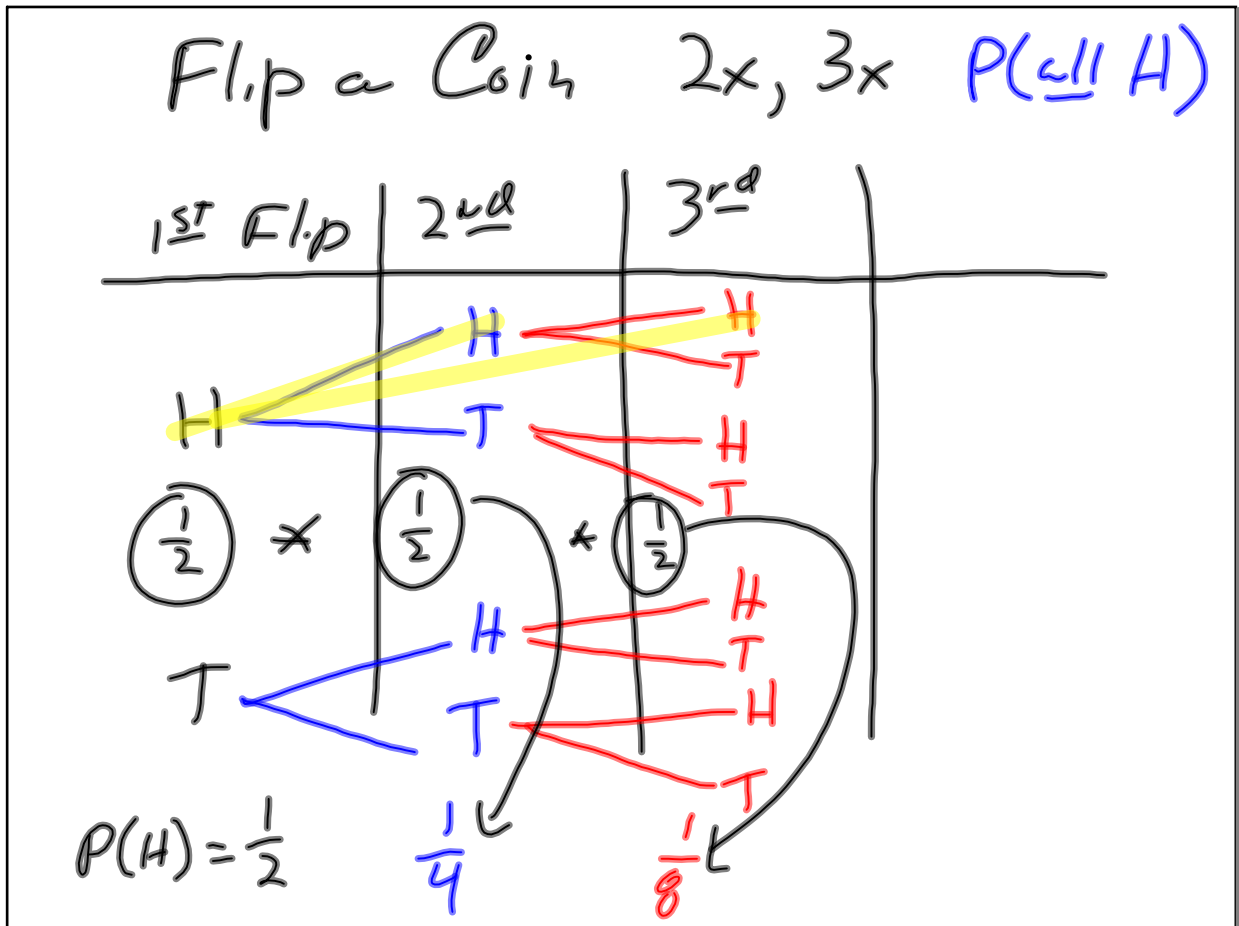 Flip a Coin 2x, 3x P(all H)
1st Flip 2nd 3rd
H H
T
H T H
T
1/2 * 1/2 * 1/2
H H
T
T T H
T
P(H) = 1/2 1/4 1/8